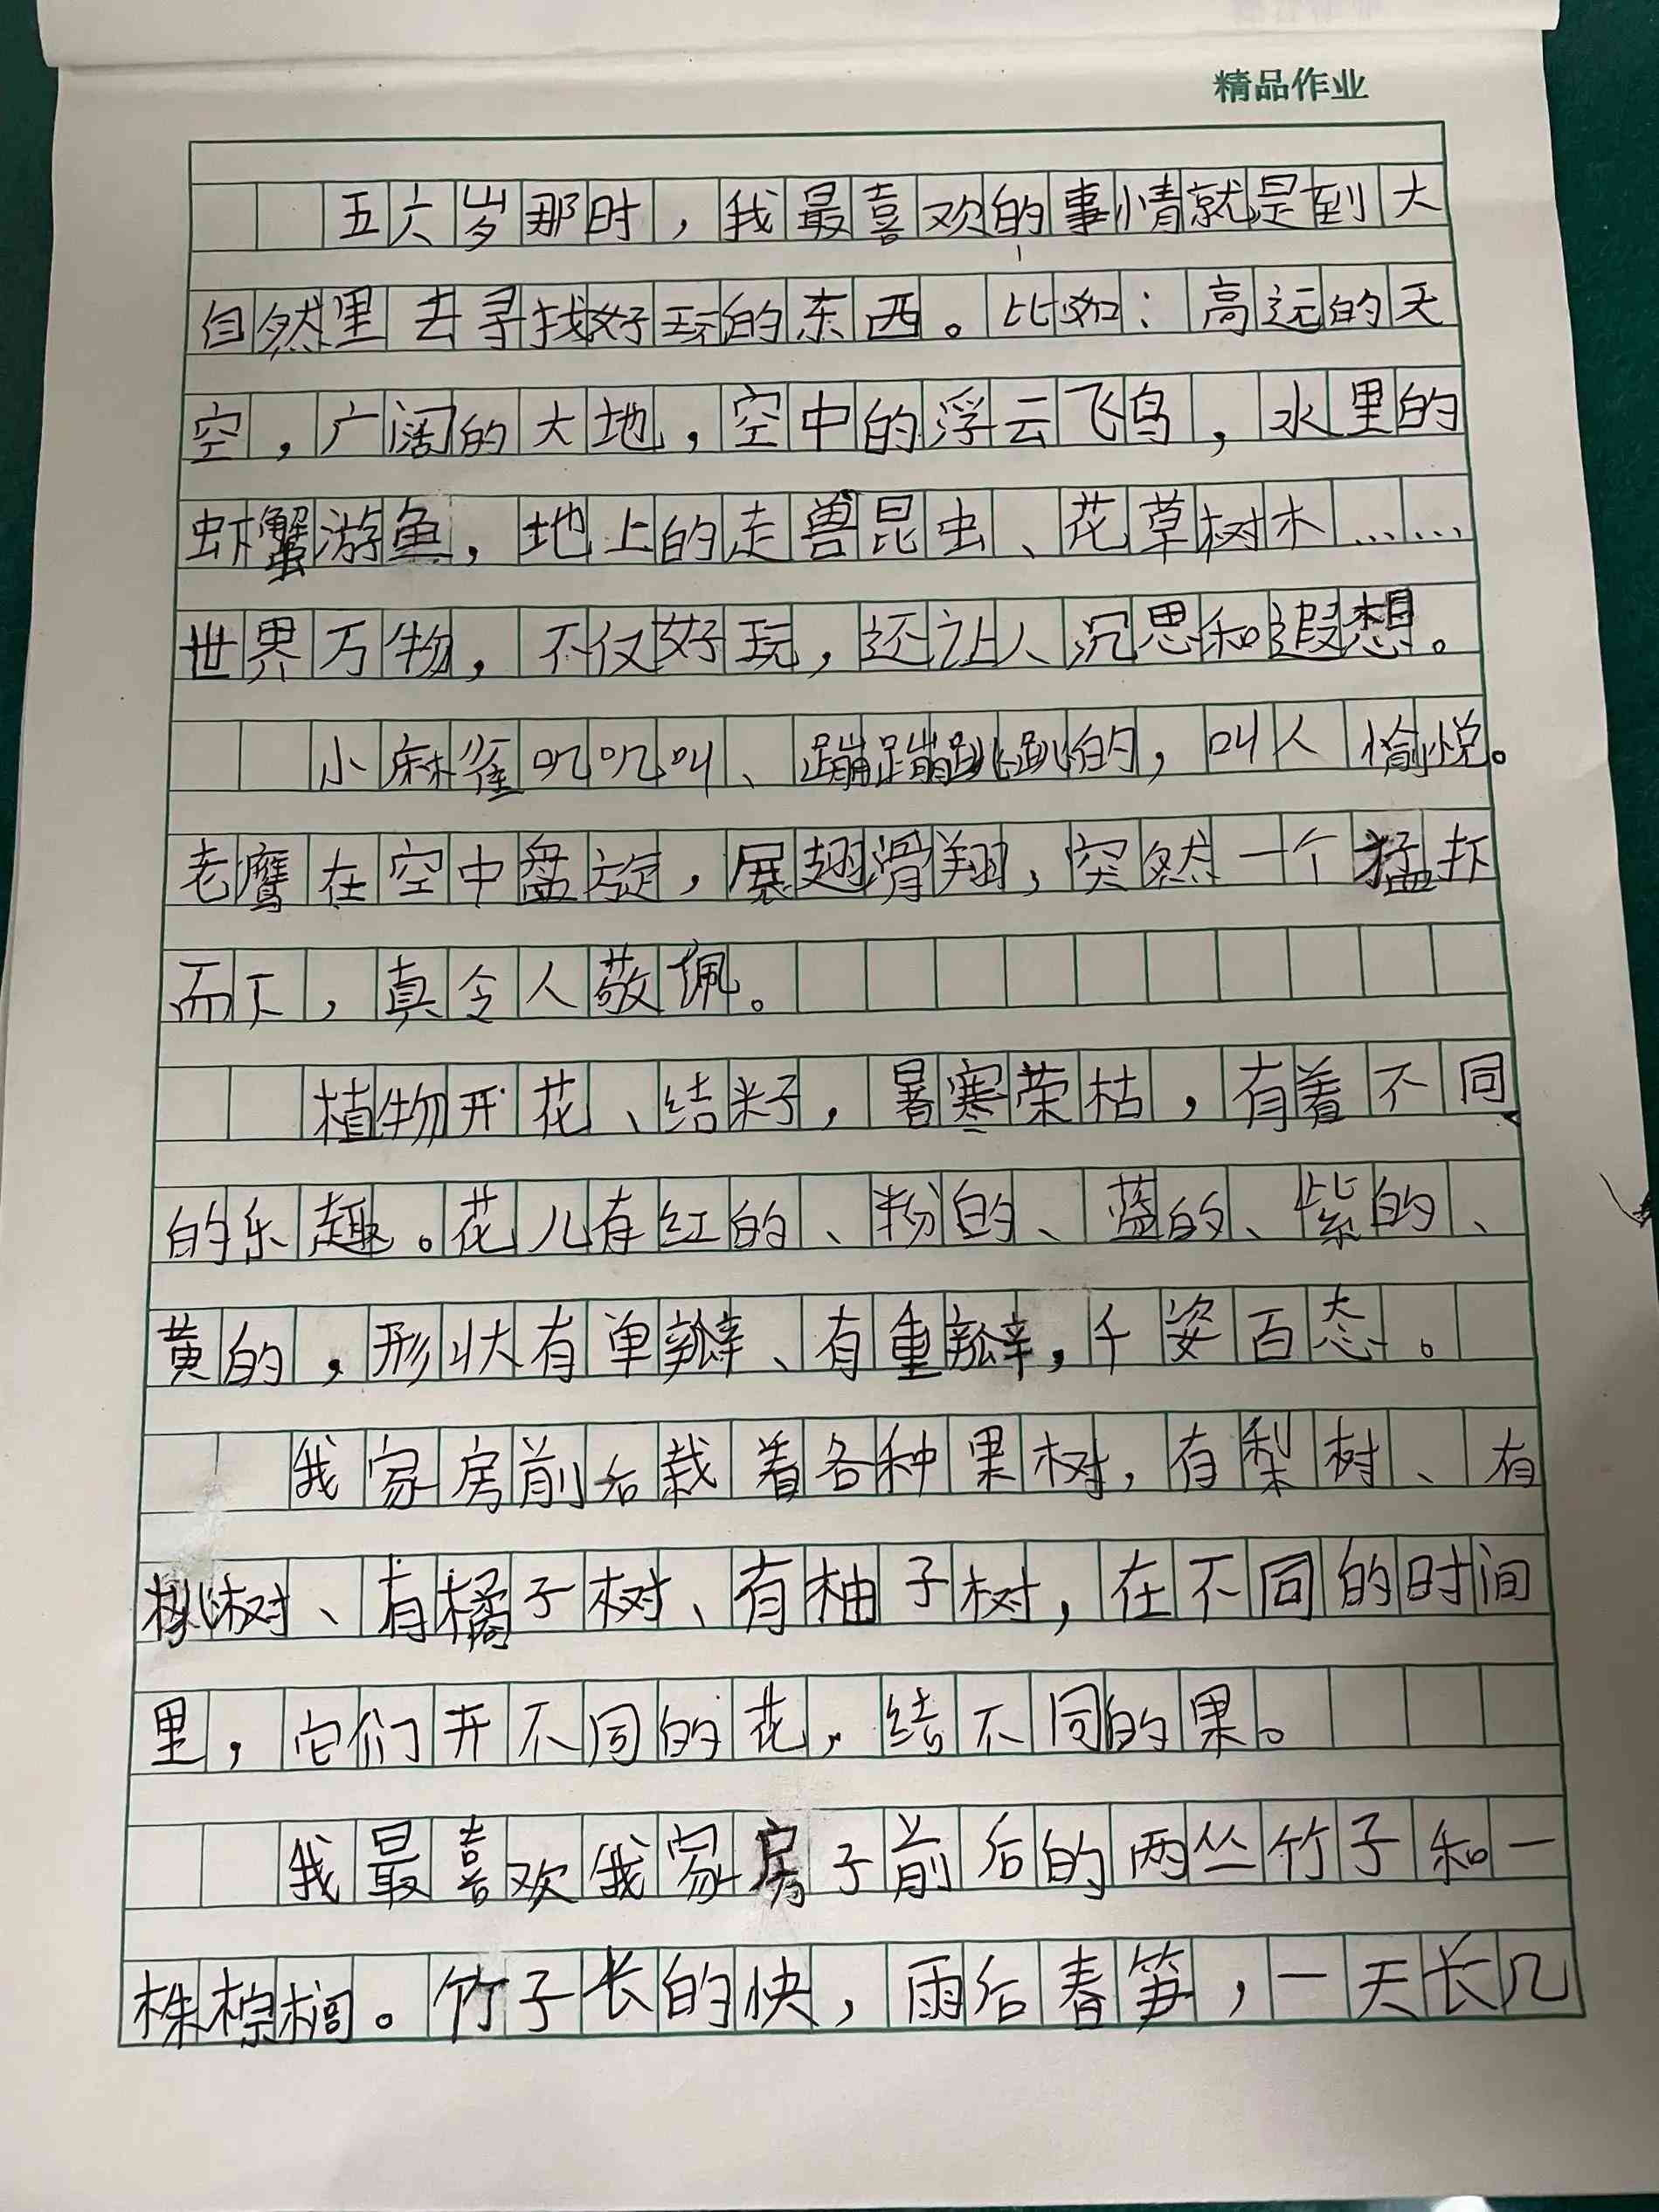 精品作业
五六岁那时，我最喜欢的事情就是到大
自然里去寻找好玩的东西。比如：高远的天
空，广阔的大地，空中的浮云飞鸟，水里的
虾蟹游鱼，地上的走兽昆虫、花草树木……
世界万物，不仅好玩，还让人沉思和遐想。
小麻雀叽叽叫、蹦蹦跳跳的，叫人愉悦。
老鹰在空中盘旋，展翅滑翔，突然一个猛扑
而下，真令人敬佩。
植物开花、结籽，暑寒荣枯，有着不同
的乐趣。花儿有红的、粉的、蓝的、紫的、
黄的，形状有单瓣、有重瓣，千姿百态。
我家房前后栽着各种果树，有梨树、有
桃树、有橘子树、有柚子树，在不同的时间
里，它们开不同的花，结不同的果。
我最喜欢我家房子前后的两丛竹子和一
株棕榈。竹子长的快，雨后春笋，一天长几